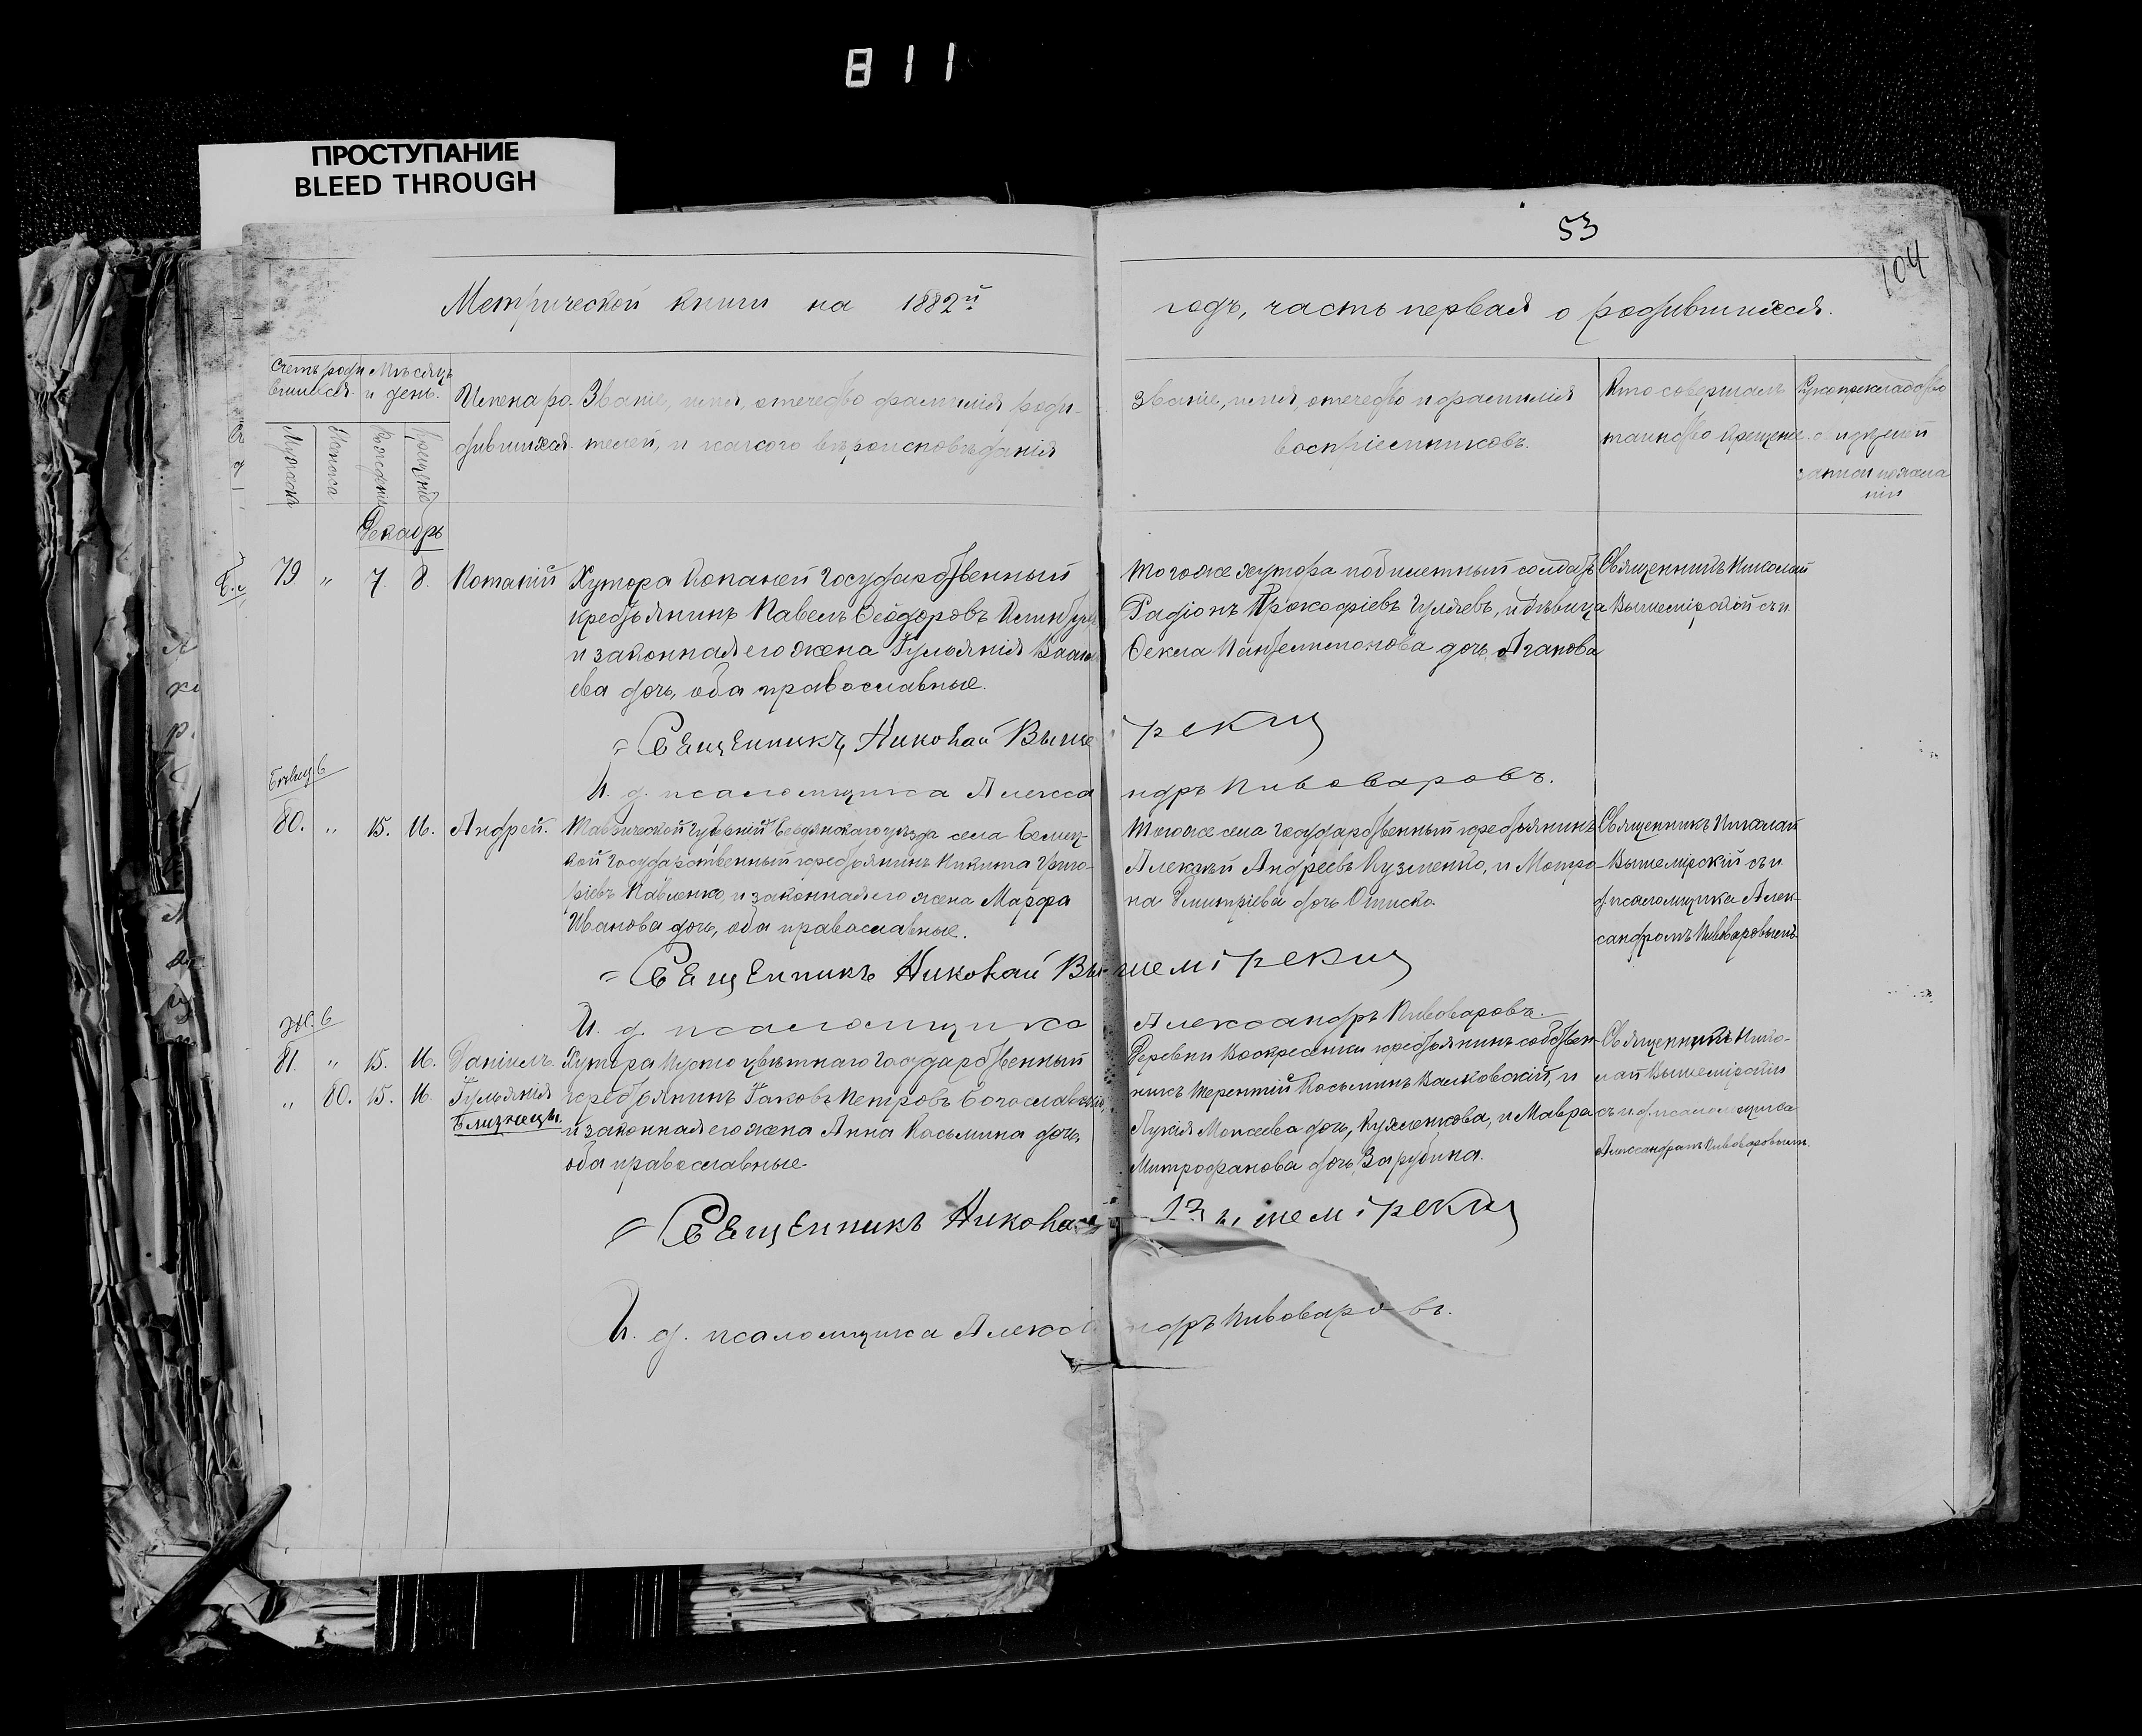 811
ПРОСТУПАНИЕ
BLEED THROUGH
53
104
Метрической книги на 1882й
годъ, часть первая о родившихся.
Счетъ роди
вшихся.
Мѣсяцъ
и день.
Мужска
Женска
Рожденіе
Крещеніе
Имена ро-
дившихся.
Званіе, имя, отчество фамилія роди-
телей, и какого вѣроисповѣданія
Званіе, имя, отчество и фамилія
воспріемниковъ.
Кто совершалъ
таинство крещенія
Рукоприкладство
свидѣтелей
записи по жела
нію
Декабрь
79. " 7. 8. Потапій
Хутора Копаней Государственный
крестьянинъ Павелъ Ѳеодоровъ
и законная его жена Гульянія
ева дочь, оба православные.
Того же хутора под билетный солдатъ
Радіонъ Прокофіевъ Гуляевъ, и дѣвица
Ѳекла Пантелимонова дочь Агапова
Священникъ Николай
Вышемірскій съ и
Священникъ Николай Выше
рскій
И. д. псаломщика Алекса
ндръ Пивоваровъ.
80. " 15. 16. Андрей.
Таврической Губерніи Бердянскаго уѣзда села
кой Государственный крестьянинъ Никита Григо-
ріевъ Павленко, и законная его жена Марфа
Иванова дочь, оба православные.
Того же села Государственный крестьянинъ
Алексѣй Андреевъ Кузменко, и Матро-
на Димитріева дочь Описко.
Священникъ Николай
Вышемірскій съ и
д. псаломщика Алек-
сандромъ Пивоваровымъ
Священникъ Николай Вы
шемірскій
И. д. псаломщика
Александръ Пивоваровъ.
81. " 15. 16. Даніилъ.
" 80. 15. 16. Гульянія
Близнецы.
Хутора Пустоцвѣтнаго Государственный
крестьянинъ Іаковъ Петровъ Богославскій,
и законная его жена Анна Косьмина дочь,
оба православные
Деревни Воскресенки крестьянинъ собствен-
никъ Терентій Косьминъ Валковскій, и
Лукія Моисеева дочь, Куяленкова, и Мавра
Митрофанова дочь, Зарубина.
Священникъ Нико-
лай Вышемірскій
съ и. д. псаломщика
Александромъ Пивоваровымъ.
Священникъ Николай
Вышемірскій
И. д. псаломщика Алекса
ндръ Пивоваровъ.